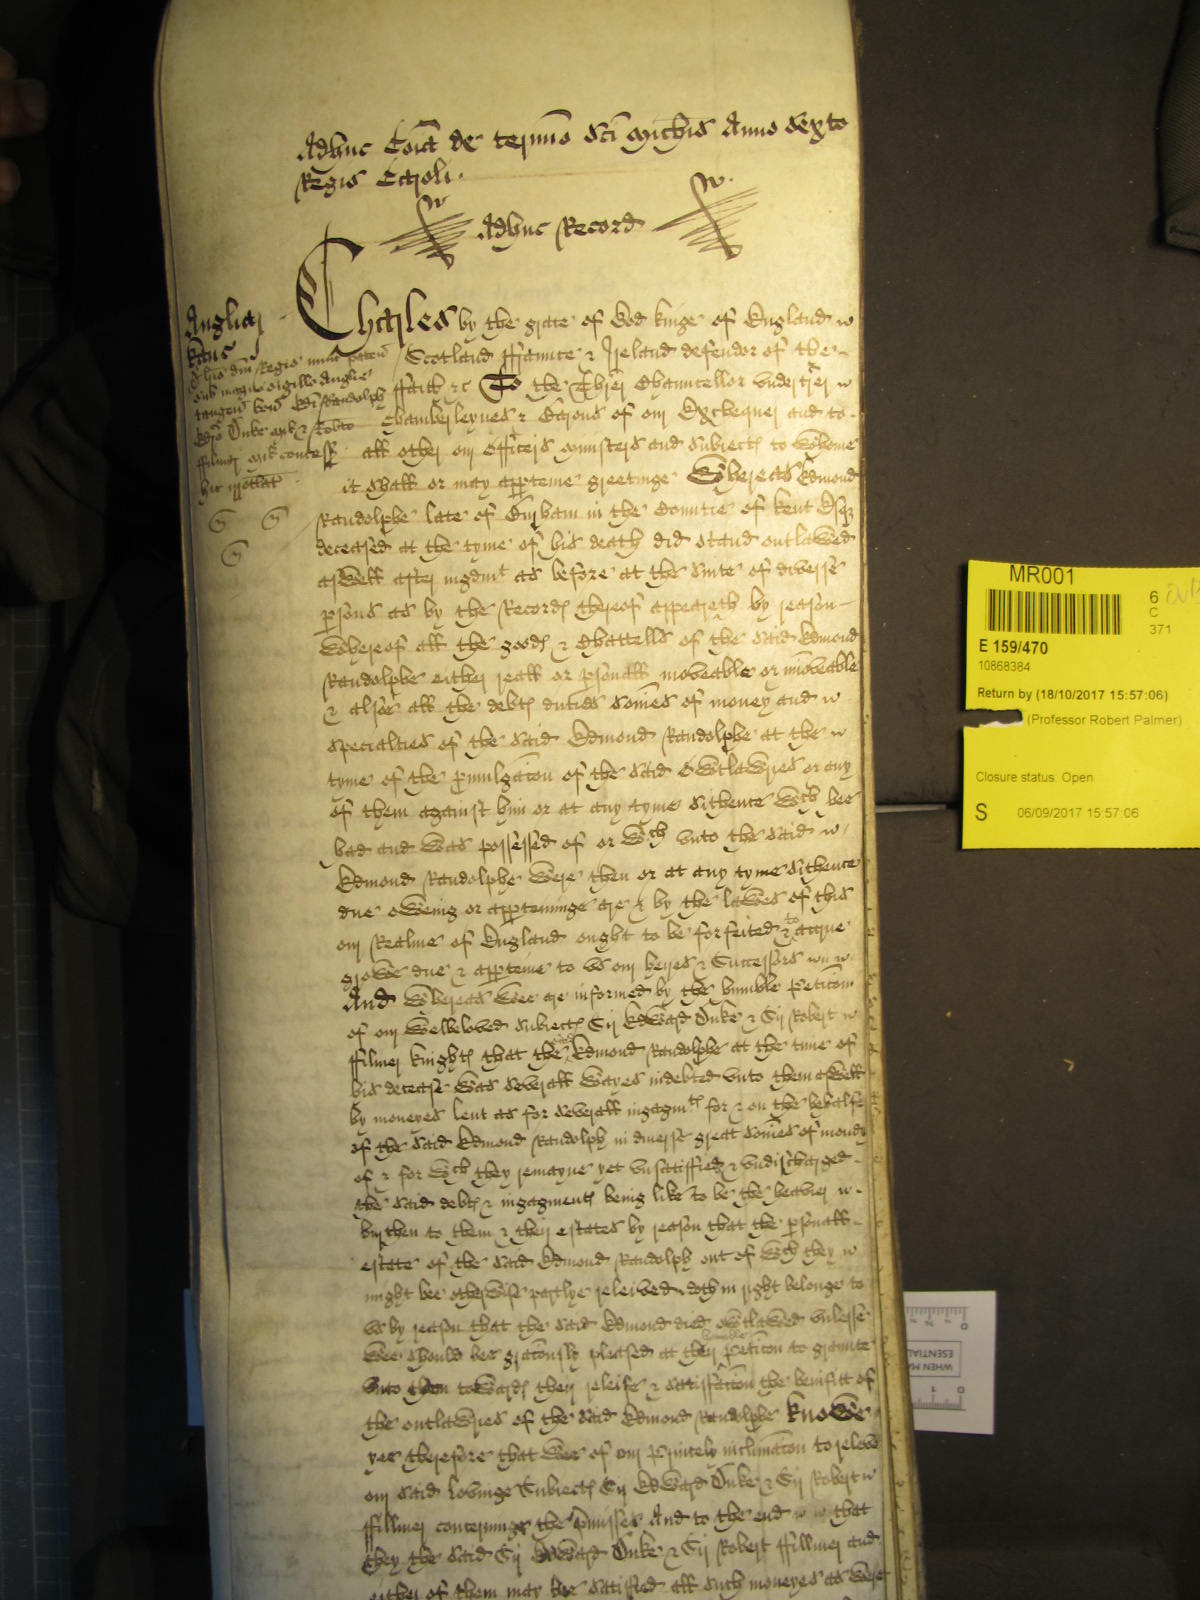 Adhuc Coĩa de termĩo Sci Michis Anno sexto
Regis Caroli.
Adhuc Record
Anglia
Kanc
Charles by the grace of God kinge of England
Scotland ffrannce & Ireland defendor of the
ffaith &c To the Thrẽr Channcellor vndertrẽr
Chamberleynes & Barons of our Exchequer and to
all other our officers ministers and subiects to whome
it shall or may apperteine greetinge Whereas Edmond
Randolphe late of in the Countie of Kent Esqr
deceased at the tyme of his death did stand outlawed
aswell after iudgmt as before at the suite of diverse
psons as by the Records thereof appeareth by reason
whereof all the goods & Chattells of the said Edmond
Randolphe either reall or psonall moveable or imoveable
& alsoe all the debts duties somes of money and
specialties of the said Edmond Randolphe at the
tyme of the pmulgacon of the said Owtlawries or any
of them against him or at any tyme sithence wch hee
had and was possessed of or wch vnto the said
Edmond Randolphe were then or at any tyme sithence
due oweing or apperteininge are & by the lawes of this
our Realme of England ought to be forfeited & to acrue
growe due & apperteine to vs our heyres & Successors
And whereas wee are informed by the humble Peticon
of our welbeloved subiects Sir Edward Duke & Sir Robert
ffilmer knights that the said Edmond Randolphe at the time of
his decease was severall wayes indebted vnto them aswell
by moneyes lent as for severall ingagmts for & on the behalfe
of the said Edmond Randolph in diverse great somes of money
of & for wch they remayne yet vnsatisfied & vndischarged
the said debts & ingagments being like to be the heavier
burthen to them & their estates by reason that the psonall
estate of the said Edmond Randolph out of wch they
might bee otherwise partlye releived doth in right belonge to
vs by reason that the said Edmond died owtlawed vnlesse
wee should bee graciously pleased at their humble Peticon to grannte
vnto them towards their releife & satisfaccon the benifitt of
the outlawries of the said Edmond Randolphe Knowe
yee therefore that wee of our Princely inclinacon to releeve
our said lovinge Subiects Sir Edward Duke & Sir Robert
ffillmer conceringe the Pmisses And to the end that
they the said Sir Edward Duke & Sir Robert ffillmer and
either of them may bee satisfied all such moneyes as were
MR001
6
C
371
E 159/470
10868384
Return by (18/10/2017 15:57:06)
(Professor Robert Palmer)
Closure status: Open
S 06/09/2017 15:57:06
WHEN MA
ESENTIAL